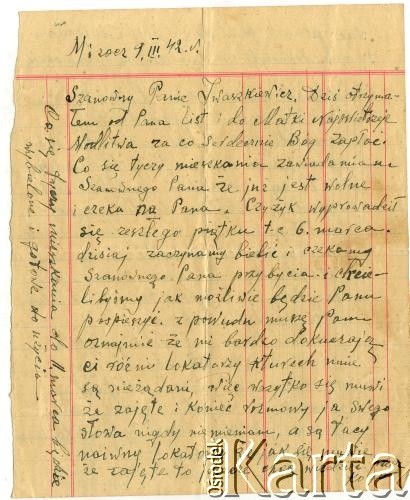 Mizocz 9. III. 42. r.
Szanowny Panie Iwaszkiewicz. Dziś otrzyma-
łem od Pana list i do Matki Najświętszej
Modlitwa za co serdecznie Bóg zapłać.
Co się tyczy mieszkania zawiadamiam
Szanownego Pana że już jest wolne
i czeka na Pana. Czyżyk wyprowadził
się zeszłego piątku t.e 6. marca.
dzisiaj zaczynamy bielić i czekamy
Szanownego Pana przybycia i chcie-
libyśmy jak możliwie będzie Panu
pospieszyć. z powodu muszę Panu
oznajmić że mi bardzo dokuczają
ci różni lokatorzy kturech mnie
są nieżądani, więc wszytko się mówi
że zajęte i koniec rozmowy ja swego
słowa nigdy niemieniam, a są tacy
naiwny lokatorzy jak się mówi
że zajęte to
Co się tyczy mieszkania do 11. marca będzie
wybielone i gotowe do użycia
ośrodek Karta